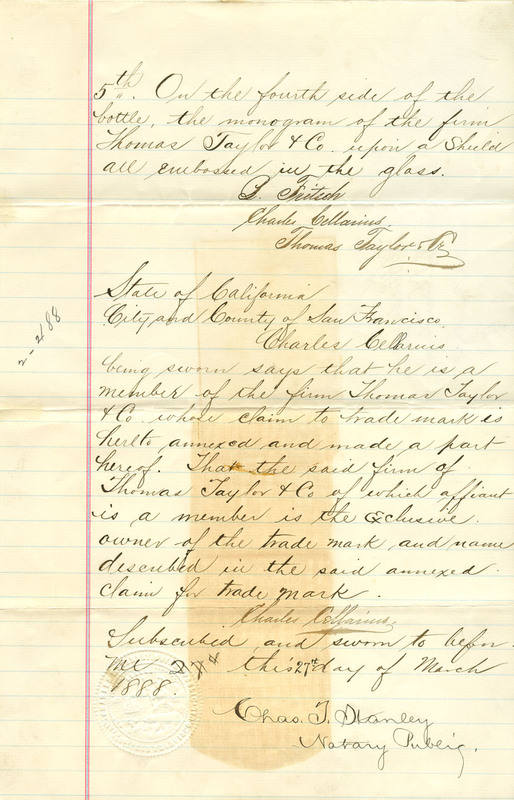 5th. On the fourth side of the
bottle, the monogram of the firm
Thomas Taylor & Co. upon a Shield
all embossed in the glass.
Fritsch
Charles Cellarius,
Thomas Taylor & Co
State of California
City and County of San Francisco
Charles Cellarius.
being sworn says that he is a
member of the firm Thomas Taylor
& Co. whose claim to trade mark is
hereto, annexed and made a part
hereof. That the said firm of
Thomas Taylor & Co of which affiant
is a member is the Exclusive
owner of the trade mark and name
described in the said annexed
claim for trade mark.
Charles Cellarius.
Subscribed and sworn to before
me this 27th day of March
1888.
Chas. T. Stanley
Notary Public.
2-488